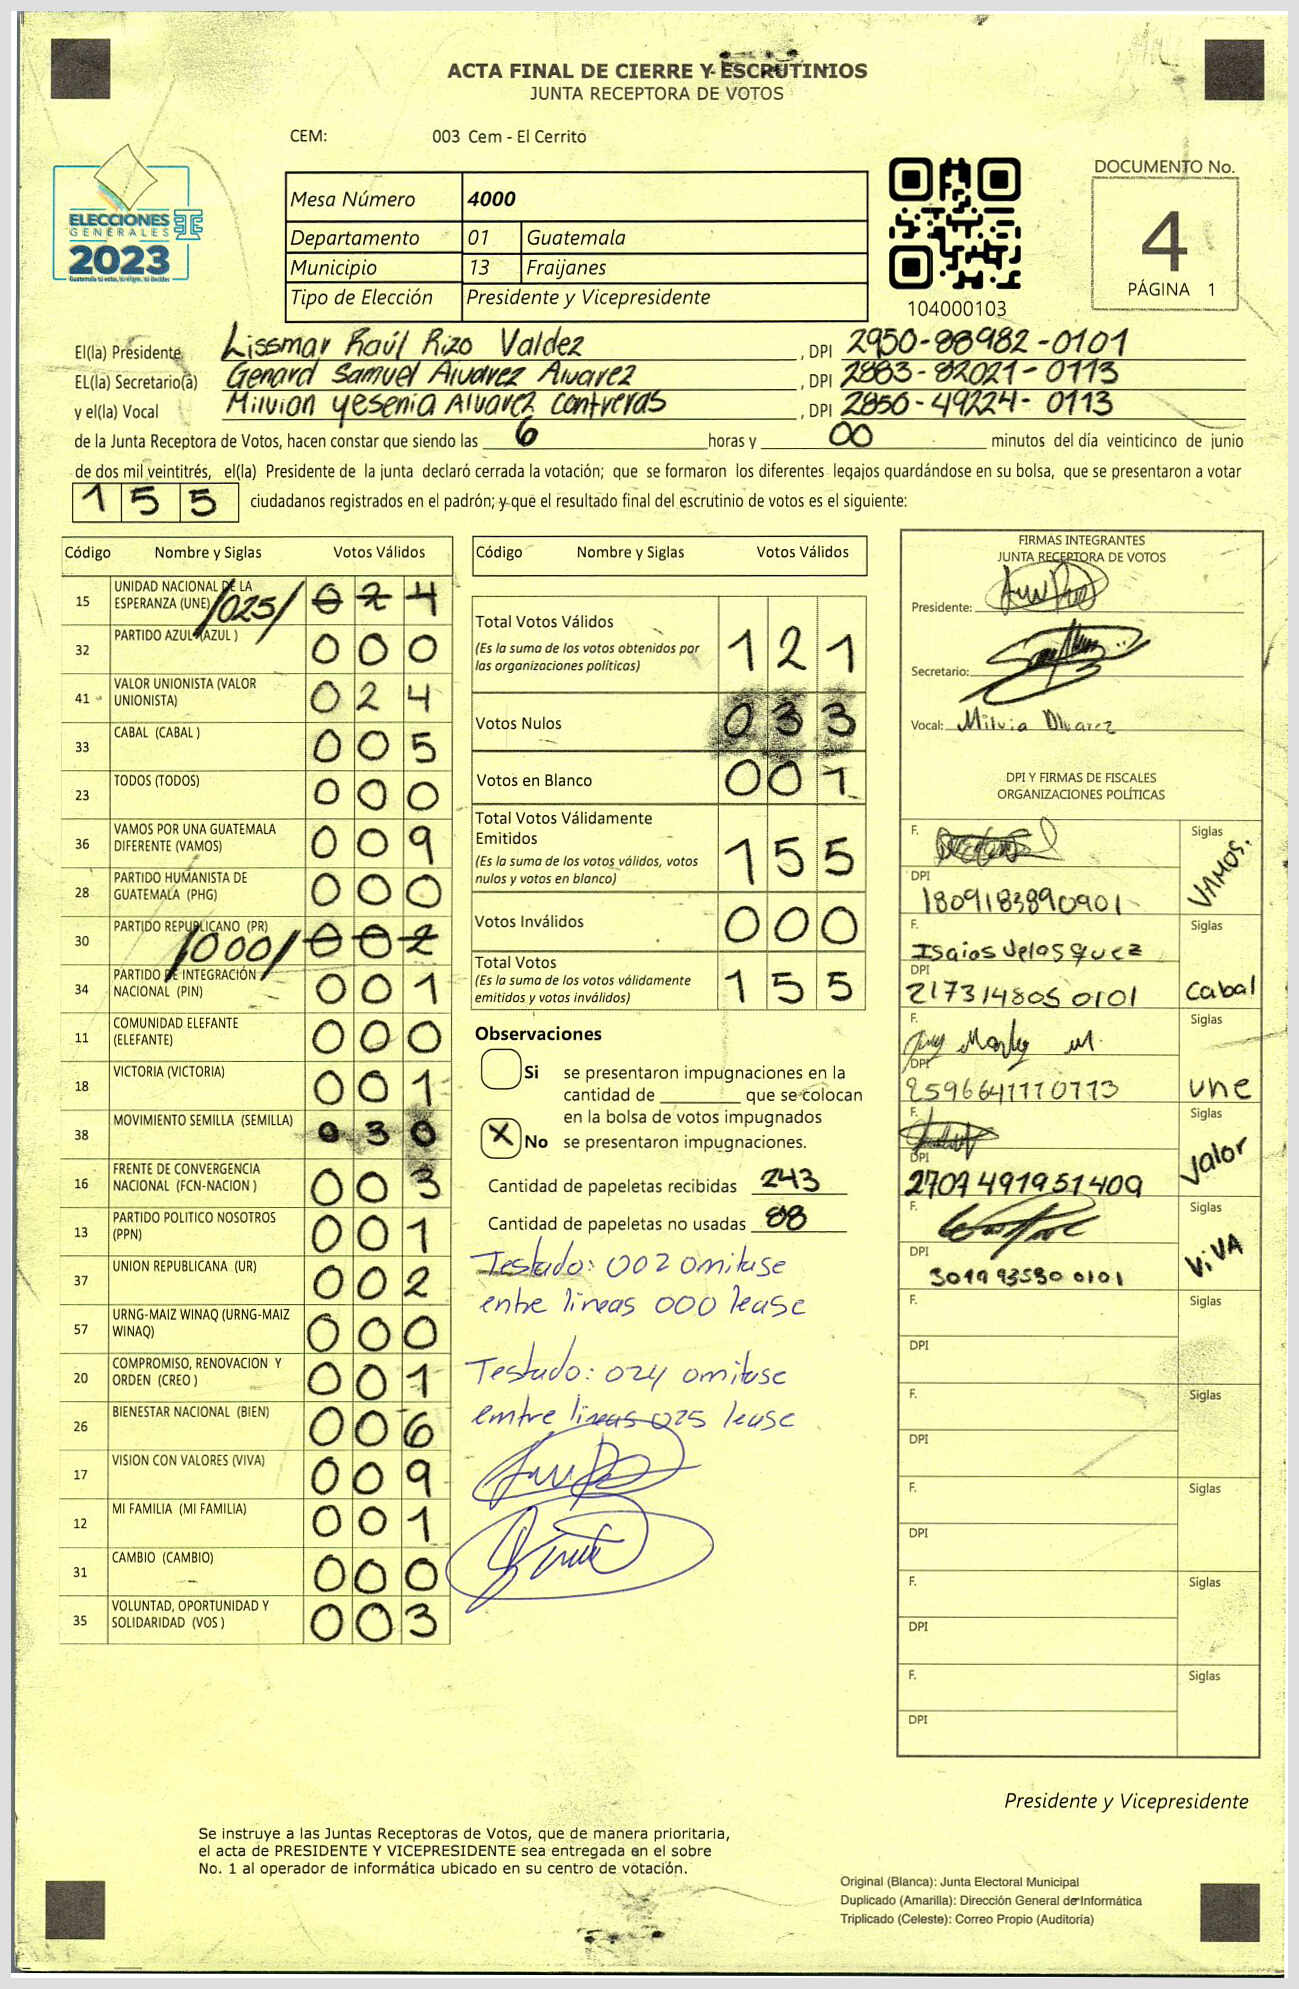 ACTA FINAL DE CIERRE Y ESCRUTINIOS
JUNTA RECEPTORA DE VOTOS
CEM: 003 Cem - El Cerrito
ELECCIONES
GENERALES
2023
Mesa Número 4000
Departamento 01 Guatemala
Municipio 13 Fraijanes
Tipo de Elección Presidente y Vicepresidente
104000103
DOCUMENTO No.
4
PÁGINA 1
El(la) Presidente Lissmar Raúl Rizo Valdez, DPI 2950-88982-0101
EL(la) Secretario(a) Genard Samuel Alvarez Alvarez, DPI 2883-82021-0113
y el(la) Vocal Milvian yesenia Alvarez Contreras, DPI 2850-49224-0113
de la Junta Receptora de Votos, hacen constar que siendo las 6 horas y 00 minutos del día veinticinco de junio
de dos mil veintitrés, el(la) Presidente de la junta declaró cerrada la votación; que se formaron los diferentes legajos quardándose en su bolsa, que se presentaron a votar
155 ciudadanos registrados en el padrón; y que el resultado final del escrutinio de votos es el siguiente:
Código Nombre y Siglas Votos Válidos
15 UNIDAD NACIONAL DE LA ESPERANZA (UNE) /025/ 024
32 PARTIDO AZUL (AZUL ) 000
41 VALOR UNIONISTA (VALOR UNIONISTA) 024
33 CABAL (CABAL ) 005
23 TODOS (TODOS) 000
36 VAMOS POR UNA GUATEMALA DIFERENTE (VAMOS) 009
28 PARTIDO HUMANISTA DE GUATEMALA (PHG) 000
30 PARTIDO REPUBLICANO (PR) /000/ 002
34 PARTIDO DE INTEGRACIÓN NACIONAL (PIN) 001
11 COMUNIDAD ELEFANTE (ELEFANTE) 000
18 VICTORIA (VICTORIA) 001
38 MOVIMIENTO SEMILLA (SEMILLA) 030
16 FRENTE DE CONVERGENCIA NACIONAL (FCN-NACION ) 003
13 PARTIDO POLITICO NOSOTROS (PPN) 001
37 UNION REPUBLICANA (UR) 002
57 URNG-MAIZ WINAQ (URNG-MAIZ WINAQ) 000
20 COMPROMISO, RENOVACION Y ORDEN (CREO ) 001
26 BIENESTAR NACIONAL (BIEN) 006
17 VISION CON VALORES (VIVA) 009
12 MI FAMILIA (MI FAMILIA) 001
31 CAMBIO (CAMBIO) 000
35 VOLUNTAD, OPORTUNIDAD Y SOLIDARIDAD (VOS ) 003
Código Nombre y Siglas Votos Válidos
Total Votos Válidos 121
(Es la suma de los votos obtenidos por
las organizaciones políticas)
Votos Nulos 033
Votos en Blanco 001
Total Votos Válidamente
Emitidos 155
(Es la suma de los votos válidos, votos
nulos y votos en blanco)
Votos Inválidos 000
Total Votos 155
(Es la suma de los votos válidamente
emitidos y votos inválidos)
Observaciones
Si se presentaron impugnaciones en la
cantidad de ________ que se colocan
en la bolsa de votos impugnados
X No se presentaron impugnaciones.
Cantidad de papeletas recibidas 243
Cantidad de papeletas no usadas 88
Testado: 002 omitase
entre lineas 000 lease
Testado: 024 omitase
emtre lineas 025 lease
FIRMAS INTEGRANTES
JUNTA RECEPTORA DE VOTOS
Presidente:
Secretario:
Vocal: Milvia Alvarez
DPI Y FIRMAS DE FISCALES
ORGANIZACIONES POLÍTICAS
F. Siglas VAMOS.
DPI 1809183890901
F. Isaias Velasquez Siglas Cabal
DPI 217314805 0101
F. Siglas une
DPI 2596641770113
F. Siglas Valor
DPI 2707491951409
F. Siglas ViVA
DPI 301993530 0101
F. Siglas
DPI
F. Siglas
DPI
F. Siglas
DPI
F. Siglas
DPI
F. Siglas
DPI
Presidente y Vicepresidente
Se instruye a las Juntas Receptoras de Votos, que de manera prioritaria,
el acta de PRESIDENTE Y VICEPRESIDENTE sea entregada en el sobre
No. 1 al operador de informática ubicado en su centro de votación.
Original (Blanca): Junta Electoral Municipal
Duplicado (Amarilla): Dirección General de Informática
Triplicado (Celeste): Correo Propio (Auditoría)